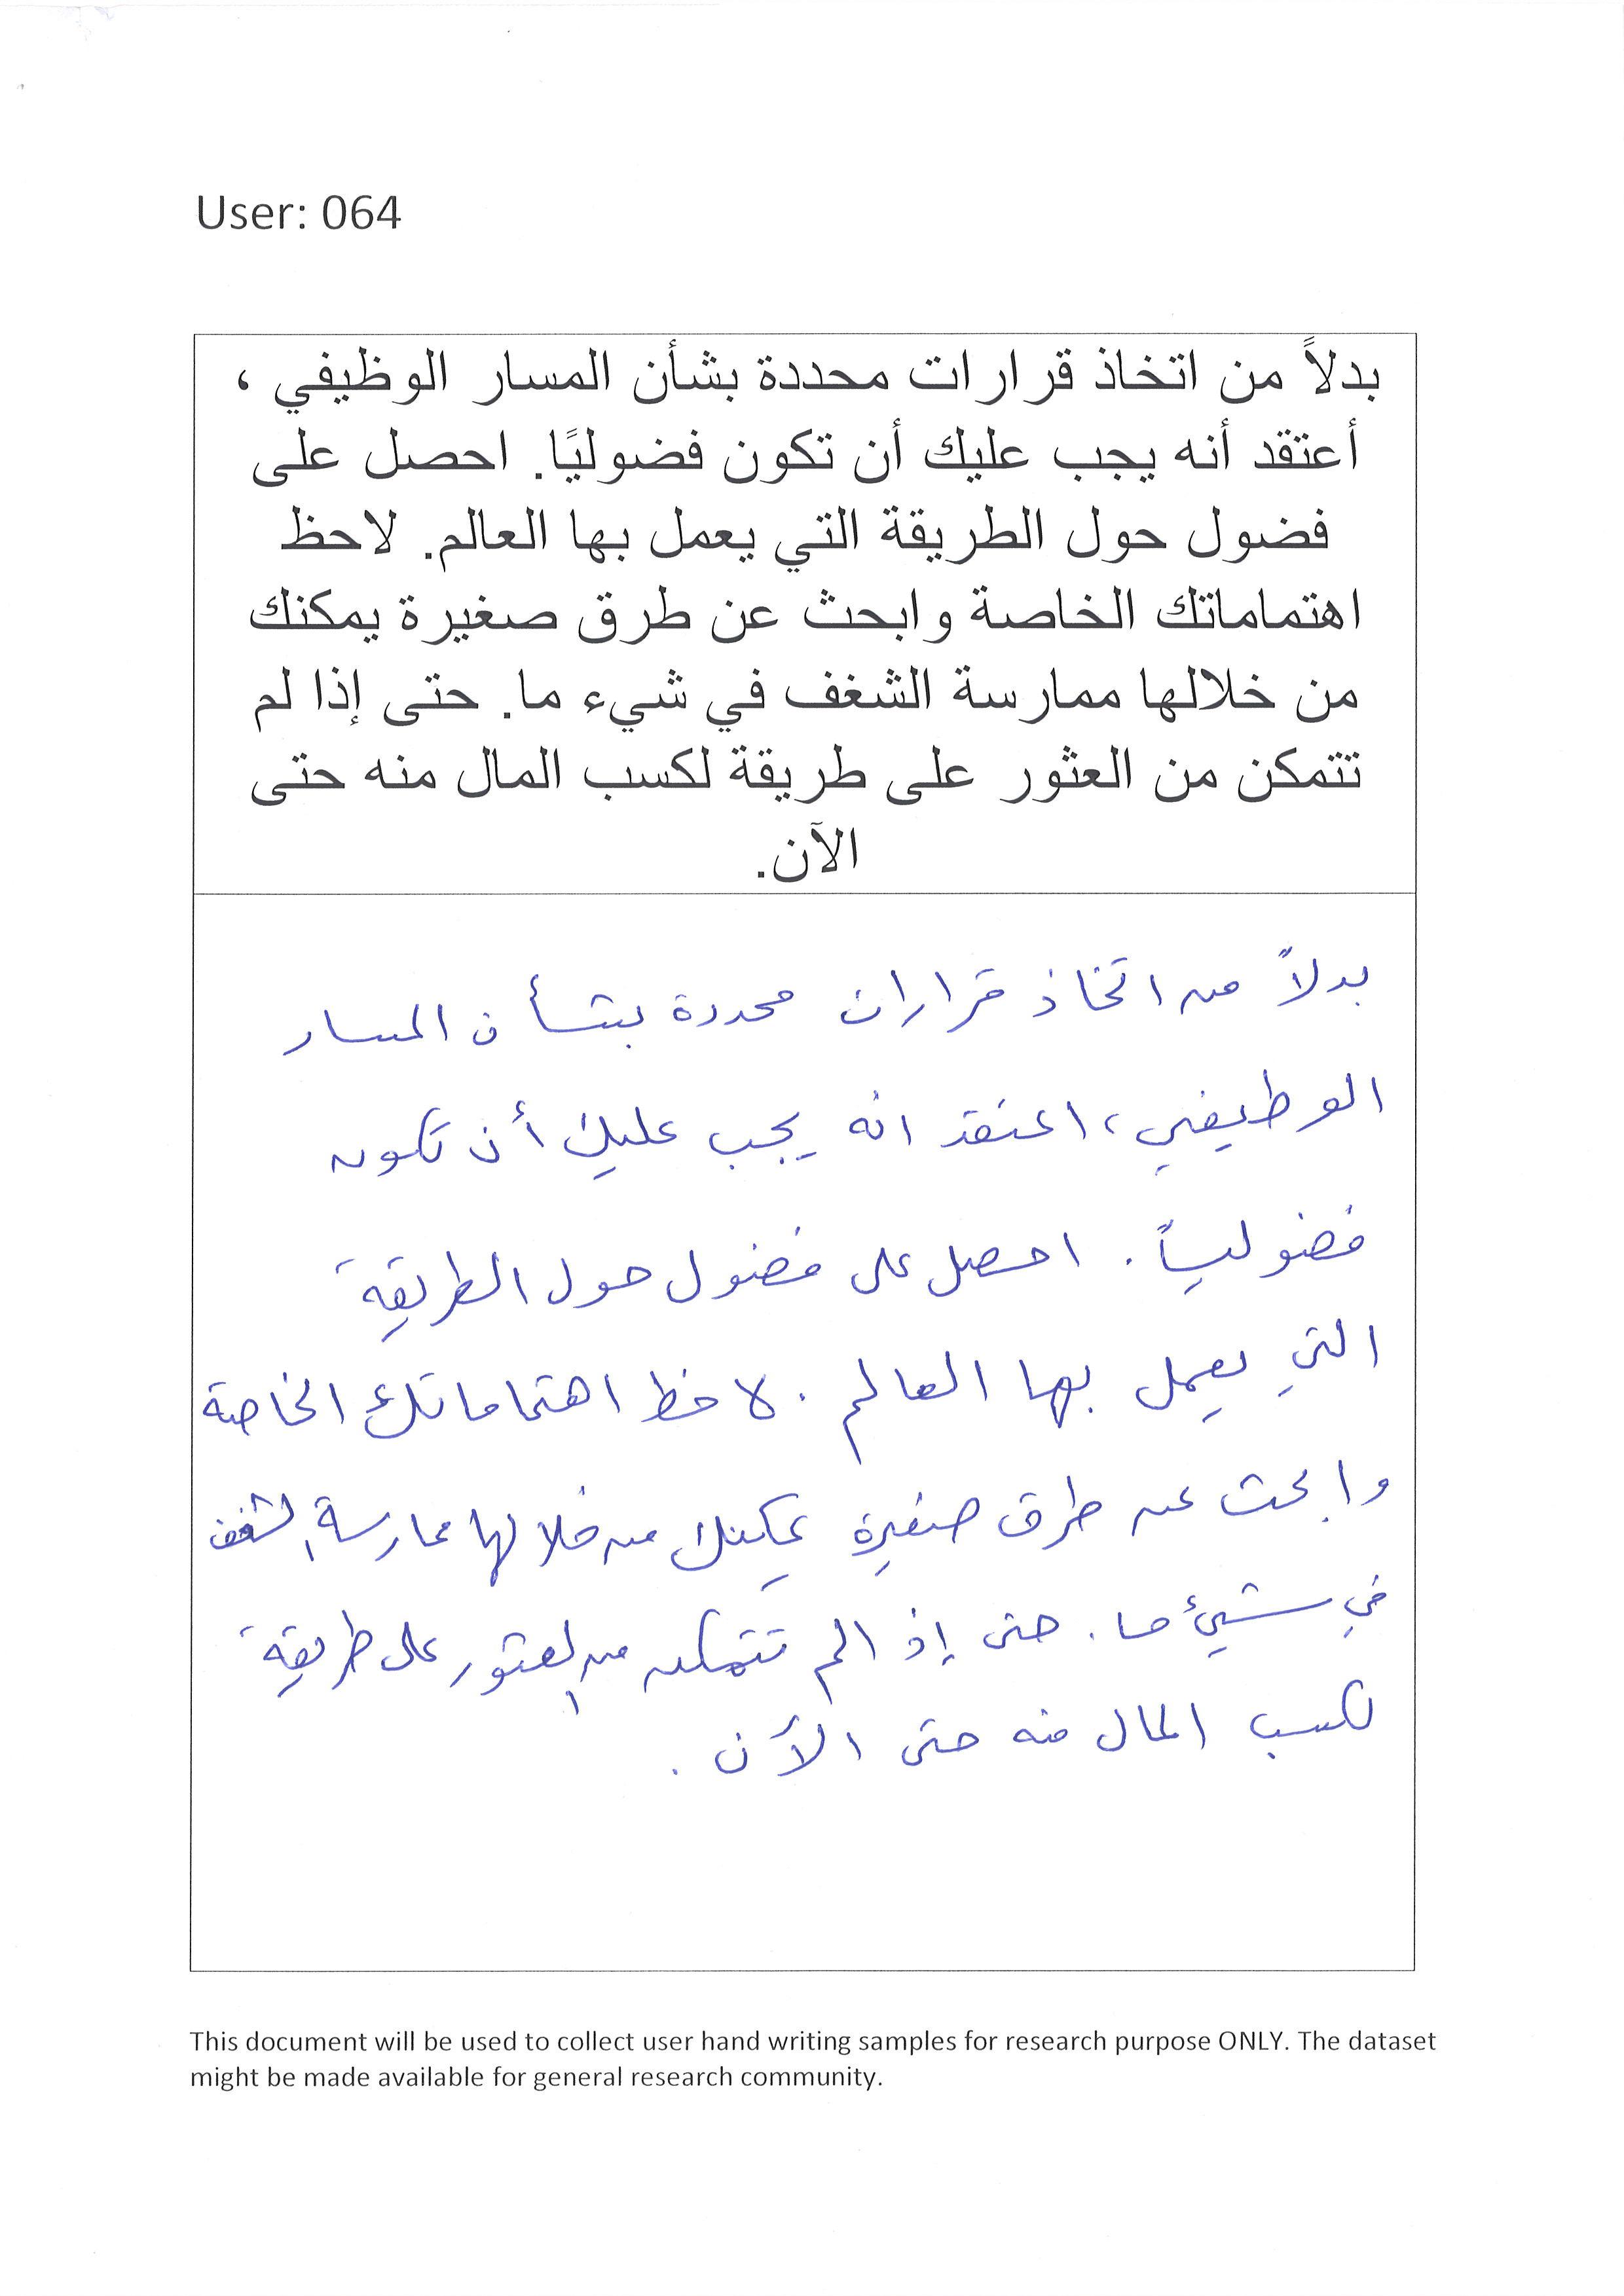 User: 064
بدلاً من اتخاذ قرارات محددة بشأن المسار الوظيفي ،
أعتقد أنه يجب عليك أن تكون فضوليًا. احصل على
فضول حول الطريقة التي يعمل بها العالم. لاحظ
اهتماماتك الخاصة وابحث عن طرق صغيرة يمكنك
من خلالها ممارسة الشغف في شيء ما. حتى إذا لم
تتمكن من العثور على طريقة لكسب المال منه حتى
الآن.
بدلاً من اتخاذ قرارات محددة بشأن المسار
الوظيفي، اعتقد انه يجب عليك أن تكون
فضولياً. احصل على فضول حول الطريقة
التي يعمل بها العالم. لاحظ اهتماماتك الخاصة
وابحث عن طرق صغيرة يمكنك من خلالها ممارسة الشغف
في شيئ ما. حتى إذا لم تتمكن من العثور على طريقة
لكسب المال منه حتى الأن.
This document will be used to collect user hand writing samples for research purpose ONLY. The dataset
might be made available for general research community.